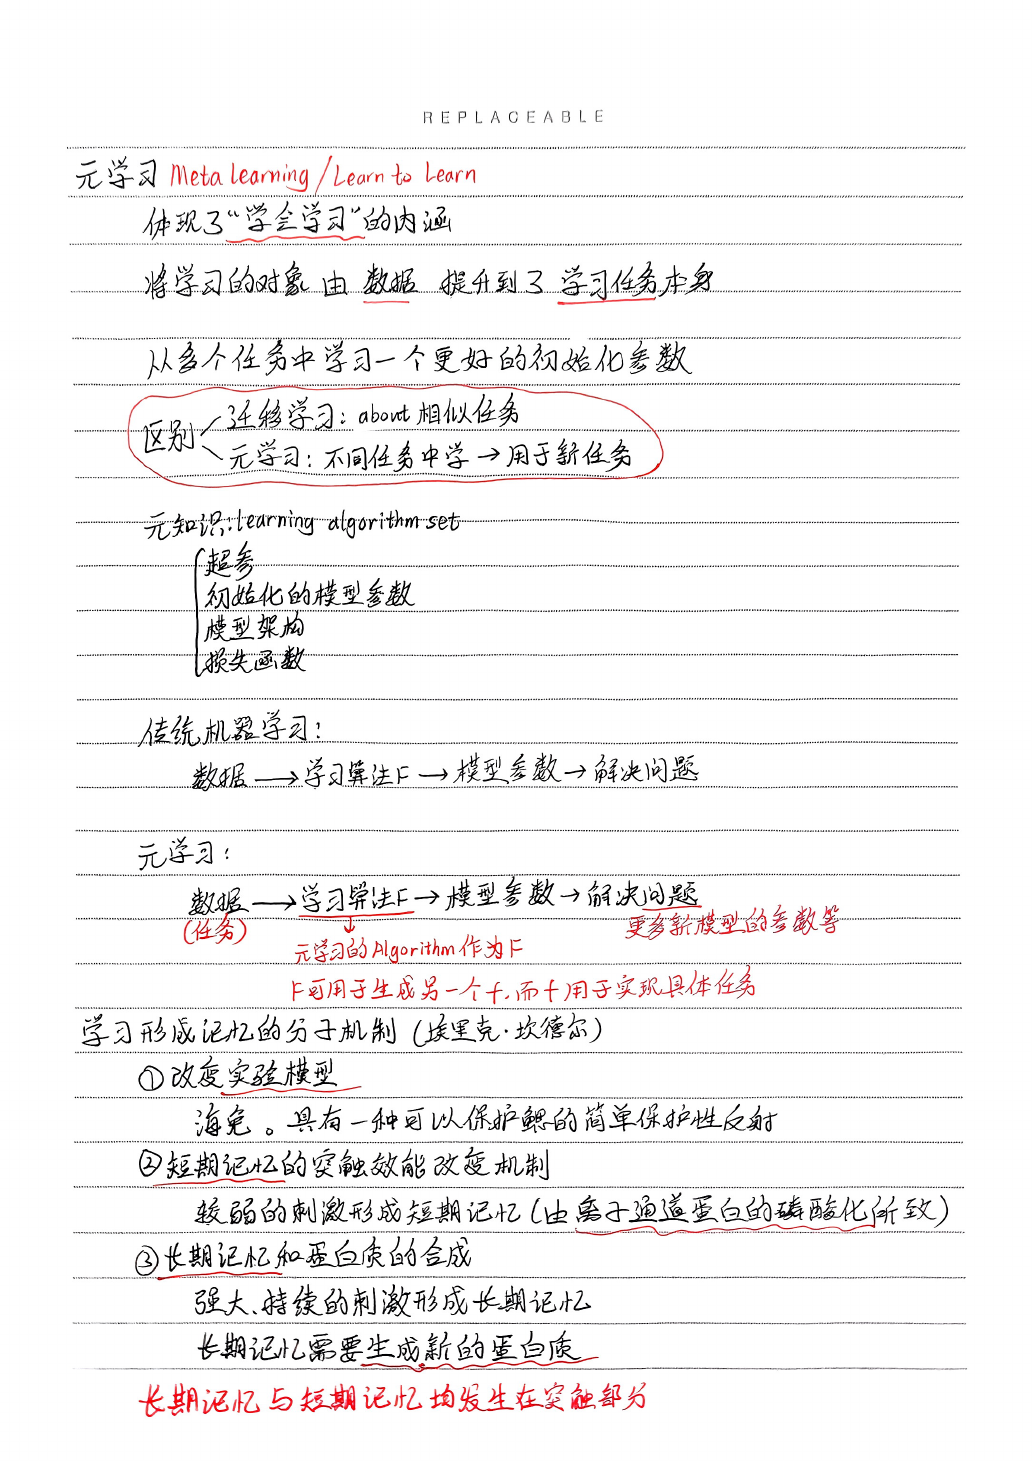 REPLACEABLE
元学习 Meta learning / Learn to Learn
体现了“学会学习”的内涵
将学习的对象 由 数据 提升到了 学习任务本身
从多个任务中学习一个更好的初始化参数
区别
迁移学习: about 相似任务
元学习: 不同任务中学 → 用于新任务
元知识: learning algorithm set
超参
初始化的模型参数
模型架构
损失函数
传统机器学习:
数据 → 学习算法F → 模型参数 → 解决问题
元学习:
数据 → 学习算法F → 模型参数 → 解决问题
(任务) ↓ 更多新模型的参数等
元学习的Algorithm作为F
F可用于生成另一个f,而f用于实现具体任务
学习形成记忆的分子机制 (埃里克·坎德尔)
①改变实验模型
海兔。具有一种可以保护鳃的简单保护性反射
②短期记忆的突触效能改变机制
较弱的刺激形成短期记忆(由离子通道蛋白的磷酸化所致)
③长期记忆和蛋白质的合成
强大、持续的刺激形成长期记忆
长期记忆需要生成新的蛋白质
长期记忆与短期记忆均发生在突触部分